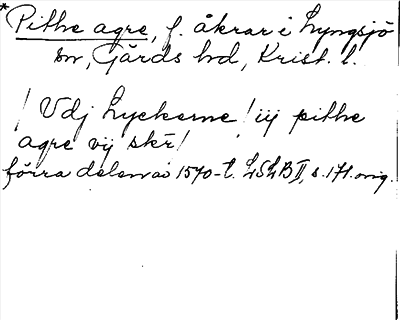 *Pithe agre, f. åkrar i Lyngsjö
sn, Gärds hd, Krist. l.
! Vdj Lyckerne! iij pithe
agre vij skr!
förra delen av 1570-t. LSLB II, s. 171. orig.